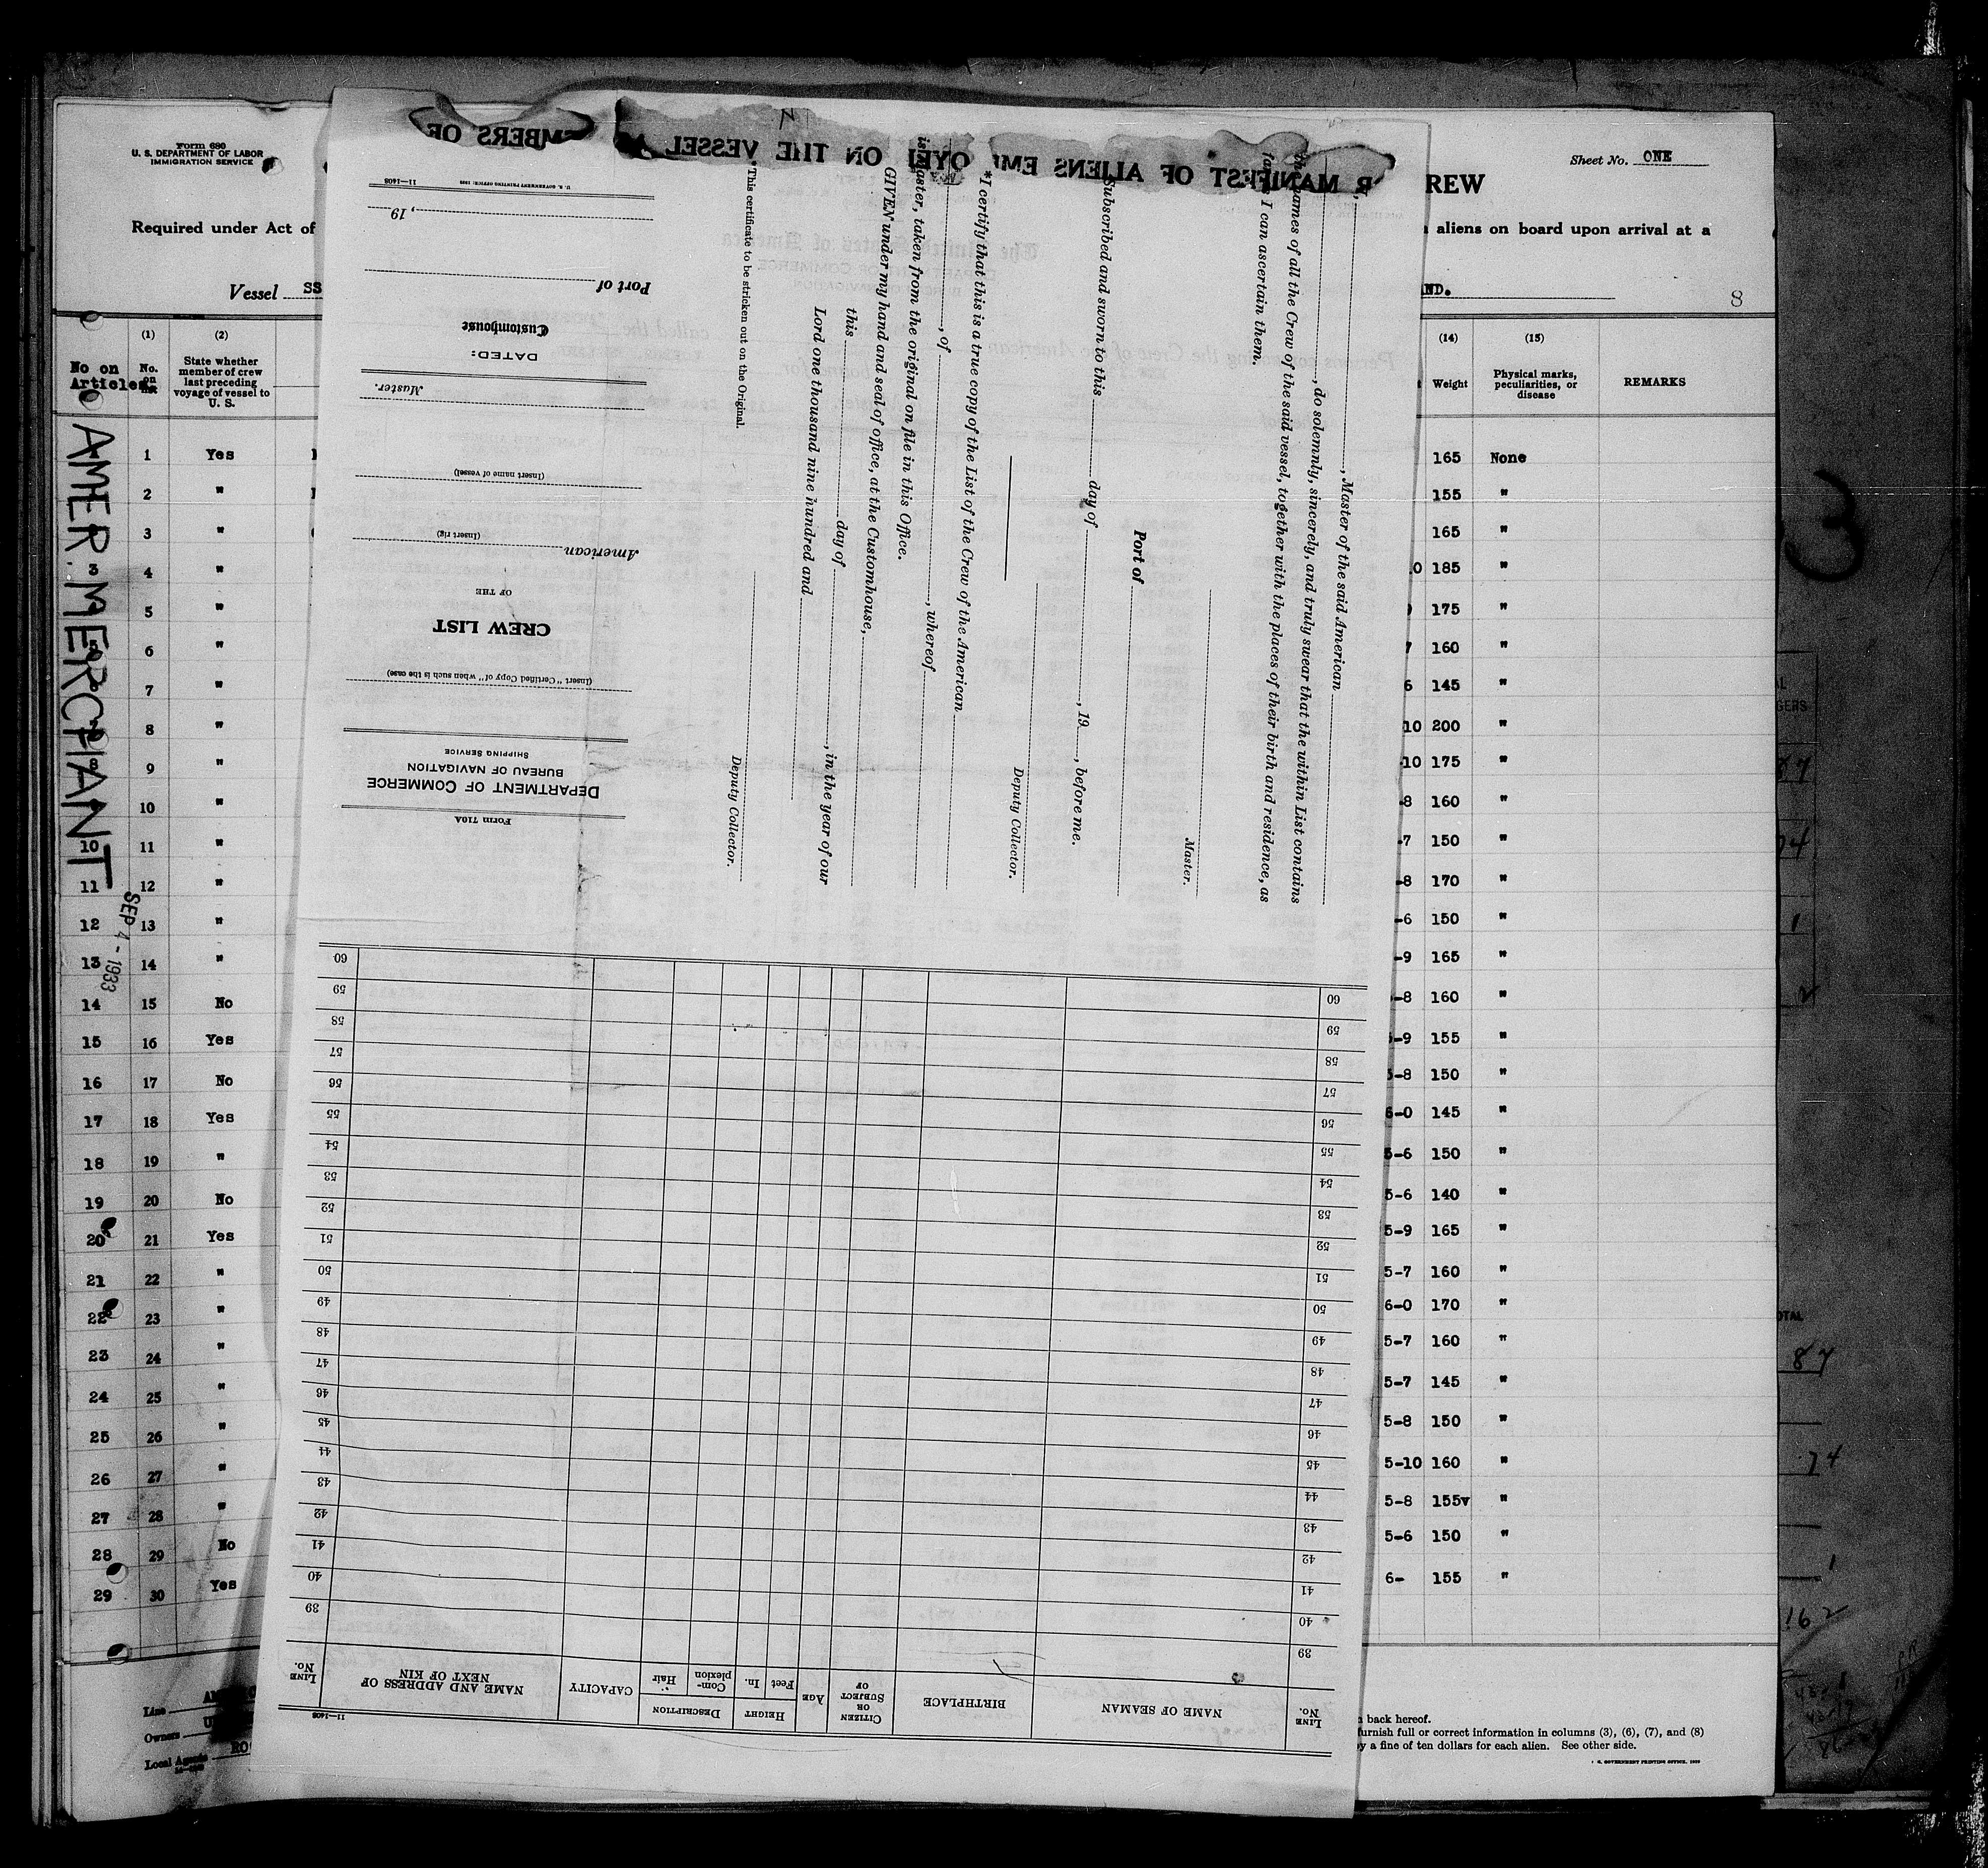 Form 680
U. S. DEPARTMENT OF LABOR
IMMIGRATION SERVICE
Required under Act of
Vessel SS
Sheet No. ONE
REW
aliens on board upon arrival at a
ND.
8
3
No on
Articles
(1)
No.
on
list
(2)
State whether
member of crew
last preceding
voyage of vessel to
U. S.
(14)
Weight
(15)
Physical marks,
peculiarities, or
disease
REMARKS
AMER. MERCHANT
SEP 4 - 1933
1 Yes 165 None
2 " 155 "
3 " 165 "
3 4 " 0 185 "
5 " 175 "
5 6 " 7 160 "
7 " 6 145 "
7 8 " 10 200 "
8 9 " 10 175 "
10 " -8 160 "
10 11 " -7 150 "
11 12 " -8 170 "
12 13 " -6 150 "
13 14 " -9 165 "
14 15 No -8 160 "
15 16 Yes -9 155 "
16 17 No 5-8 150 "
17 18 Yes 6-0 145 "
18 19 " 5-6 150 "
19 20 No 5-6 140 "
20 21 Yes 5-9 165 "
21 22 " 5-7 160 "
22 23 " 6-0 170 "
23 24 " 5-7 160 "
24 25 " 5-7 145 "
25 26 " 5-8 150 "
26 27 " 5-10 160 "
27 28 " 5-8 155v "
28 29 No 5-6 150 "
29 30 Yes 6- 155 "
Line
Owners
Local Agents
back hereof.
furnish full or correct information in columns (3), (6), (7), and (8)
by a fine of ten dollars for each alien. See other side.
U. S. GOVERNMENT PRINTING OFFICE
R MANIFEST OF ALIENS EMPLOYED ON THE VESSEL
MBERS OF
, Master of the said American
, do solemnly, sincerely, and truly swear that the within List contains
the names of all the Crew of the said vessel, together with the places of their birth and residence, as
far as I can ascertain them.
Master.
Port of
Subscribed and sworn to this day of , 19 , before me.
Deputy Collector.
*I certify that this is a true copy of the List of the Crew of the American
, of , whereof
is Master, taken from the original on file in this Office.
GIVEN under my hand and seal of office, at the Customhouse,
this day of , in the year of our
Lord one thousand nine hundred and
Deputy Collector.
*This certificate to be stricken out on the Original.
Form 710A
DEPARTMENT OF COMMERCE
BUREAU OF NAVIGATION
SHIPPING SERVICE
(Insert "Certified Copy of" when such is the case)
CREW LIST
OF THE
American
(Insert rig)
(Insert name of vessel)
Master.
DATED:
Customhouse
Port of
, 19
11—1408
U. S. GOVERNMENT PRINTING OFFICE
11—1408
LINE No.
NAME OF SEAMAN
BIRTHPLACE
CITIZEN OR SUBJECT OF
AGE
HEIGHT
Feet In.
DESCRIPTION
Complexion Hair
CAPACITY
NAME AND ADDRESS OF NEXT OF KIN
LINE No.
39 39
40 40
41 41
42 42
43 43
44 44
45 45
46 46
47 47
48 48
49 49
50 50
51 51
52 52
53 53
54 54
55 55
56 56
57 57
58 58
59 59
60 60
GERS
87
74
1
2
OTAL
87
74
1
162